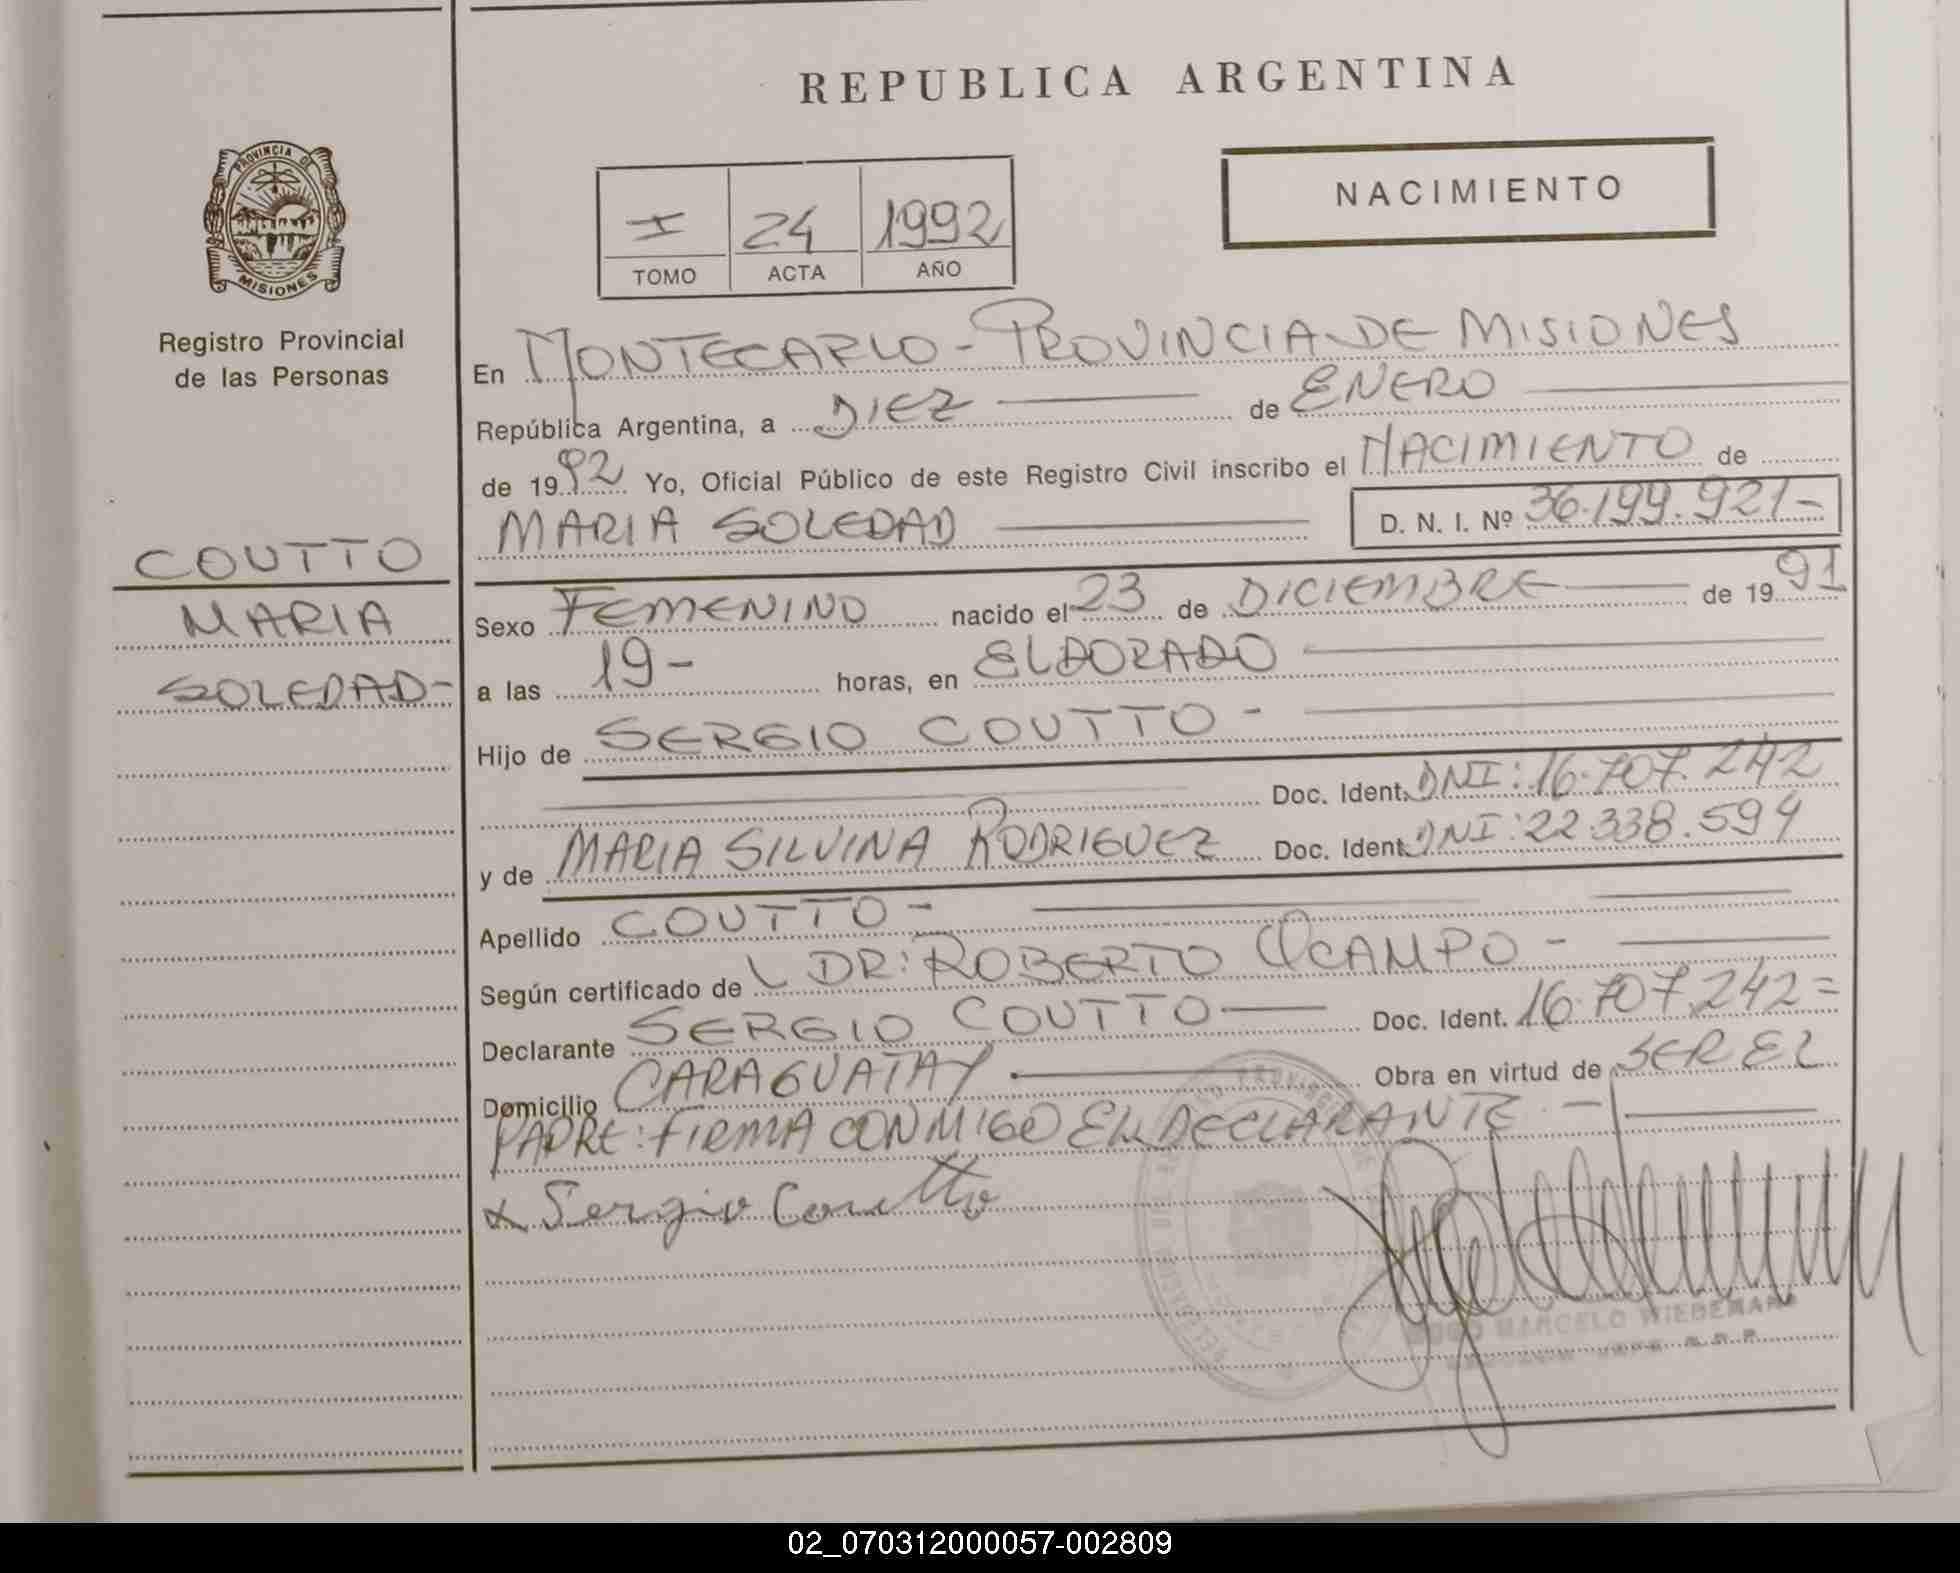 REPUBLICA ARGENTINA
PROVINCIA DE
MISIONES
Registro Provincial
de las Personas
I 24 1992
TOMO ACTA AÑO
NACIMIENTO
En MONTECARLO - PROVINCIA DE MISIONES
República Argentina, a DIEZ de ENERO
de 1992 Yo, Oficial Público de este Registro Civil inscribo el NACIMIENTO de
MARIA SOLEDAD D. N. I. Nº 36.199.921-
COUTTO
MARIA
SOLEDAD-
Sexo FEMENINO nacido el 23 de DICIEMBRE de 1991
a las 19- horas, en ELDORADO
Hijo de SERGIO COUTTO -
Doc. Ident. DNI: 16.707.242
y de MARIA SILVINA RODRIGUEZ Doc. Ident. DNI: 22.338.594
Apellido COUTTO -
Según certificado de DR: ROBERTO OCAMPO -
Declarante SERGIO COUTTO Doc. Ident. 16.707.242=
Domicilio CARAGUATAY Obra en virtud de SER EL
PADRE: FIRMA CONMIGO EL DECLARANTE. -
x Sergio Coutto
MARCELO WIEDEMANN
02_070312000057-002809